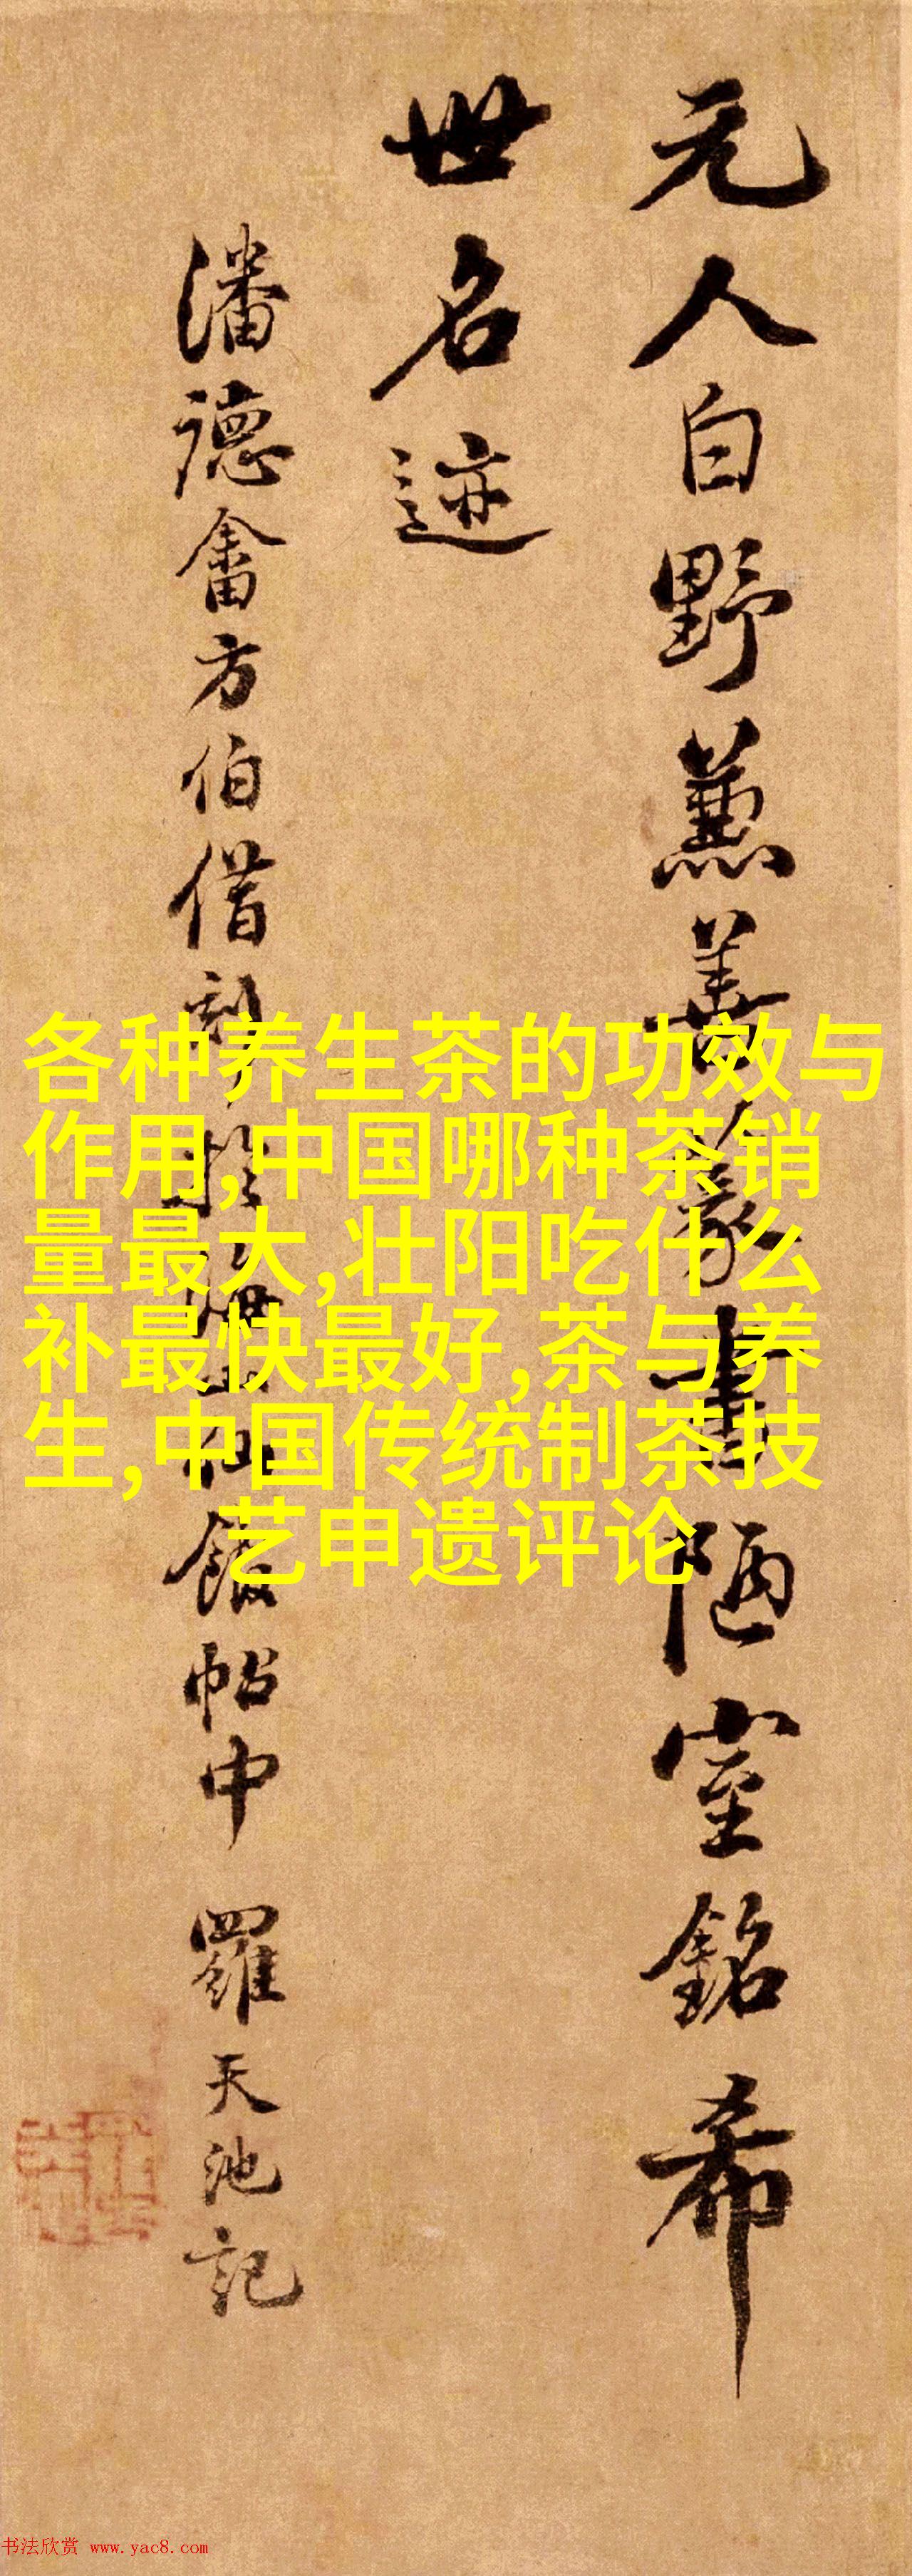 元人白野兼善篆書陋室銘希
世名迹
潘德畬方伯借刻於海山仙館帖中 羅天池記
各种养生茶的功效与
作用,中国哪种茶销
量最大,壮阳吃什么
补最快最好,茶与养
生,中国传统制茶技
艺申遗评论
书法欣赏 www.yac8.com